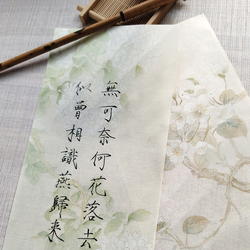 無可奈何花落去
似曾相識燕歸来